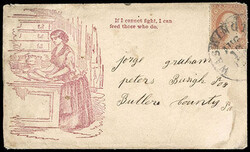 If I cannot fight, I can
feed those who do.
jorge graham
peters Burgh Pos
Butlere County